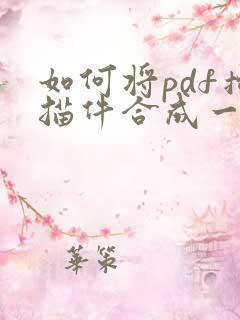 如何将pdf扫
描件合成一
華策